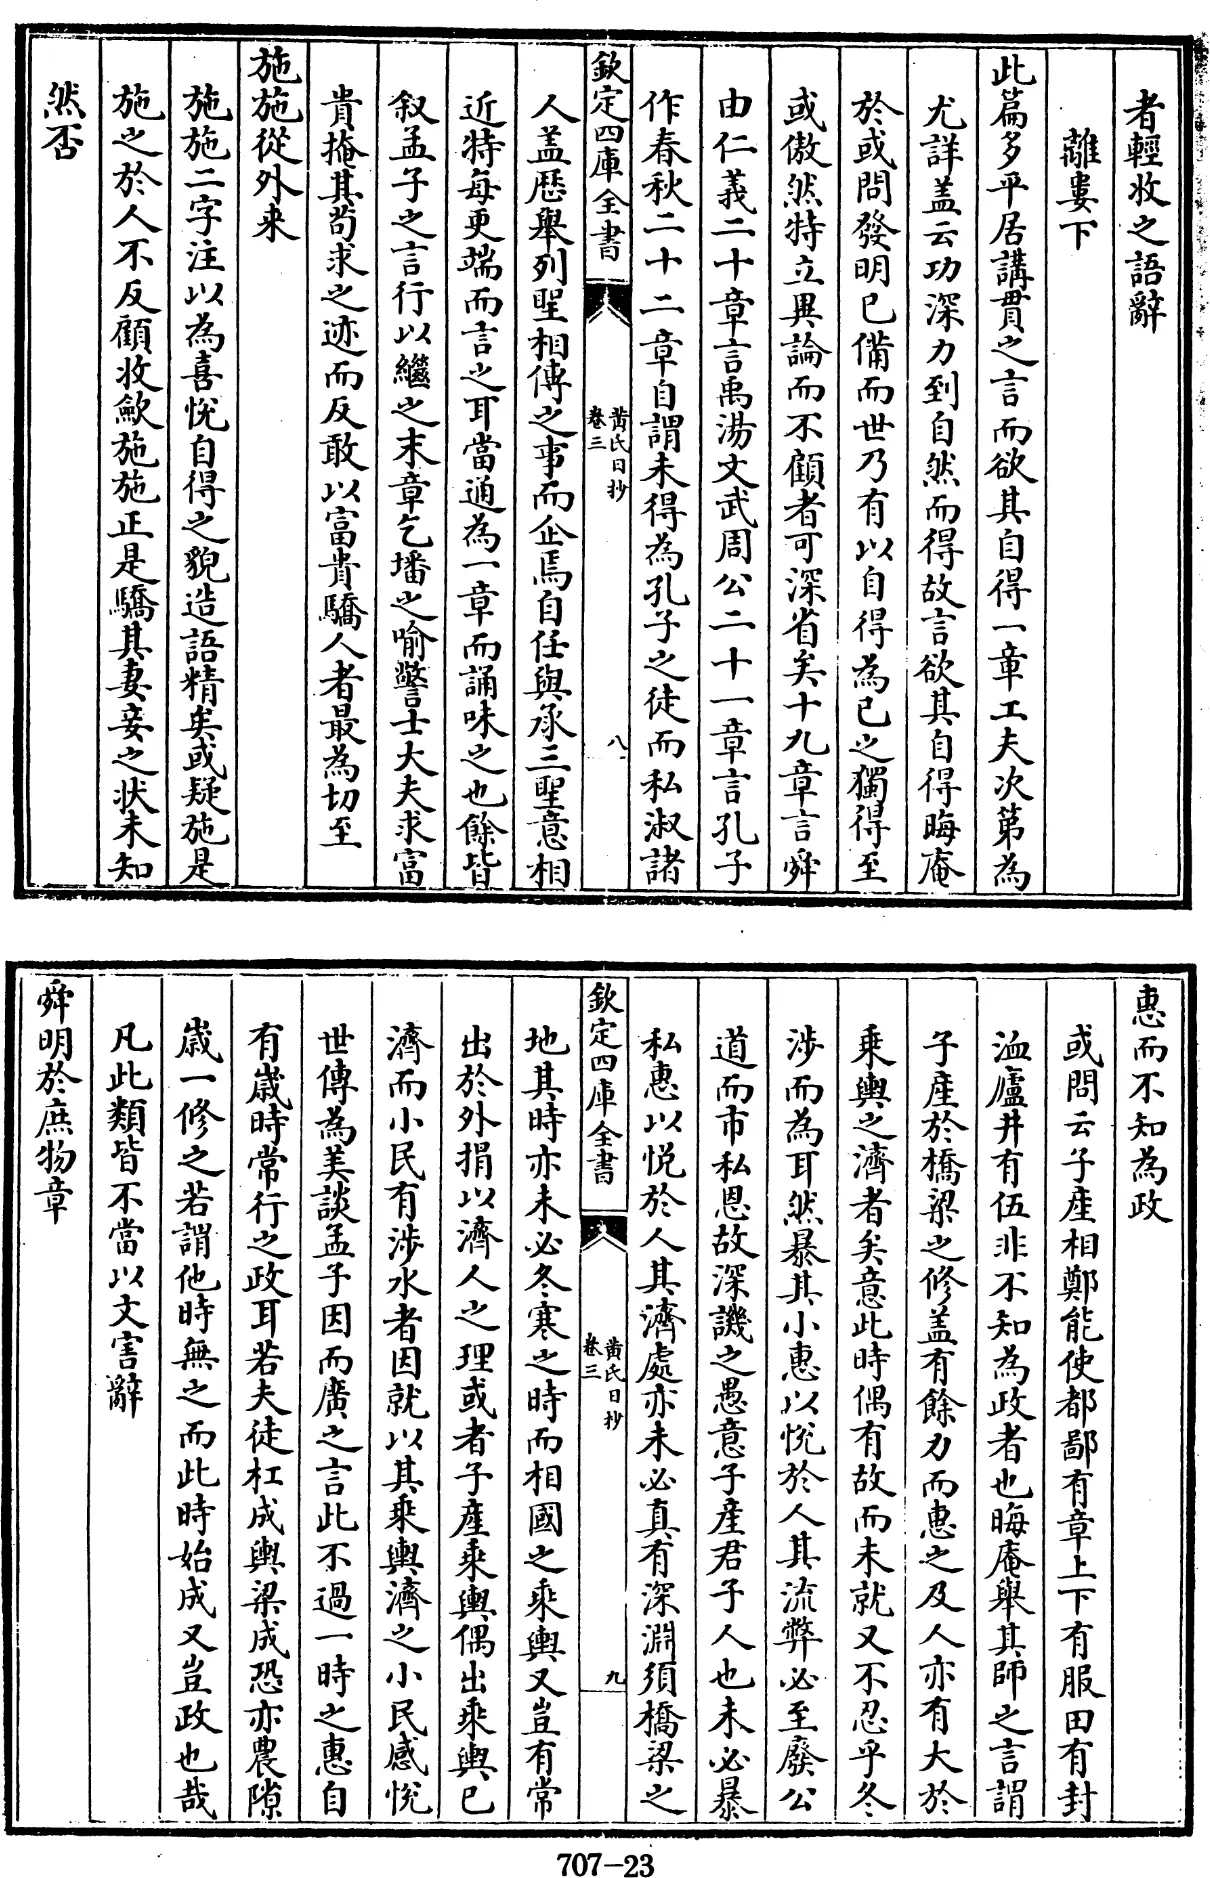 者輕收之語辭
離婁下
此篇多平居講貫之言而欲其自得一章工夫次第為
尤詳盖云功深力到自然而得故言欲其自得晦庵
於或問發明已備而世乃有以自得為已之獨得至
或傲然特立異論而不顧者可深省矣十九章言舜
由仁義二十章言禹湯文武周公二十一章言孔子
作春秋二十二章自謂未得為孔子之徒而私淑諸
欽定四庫全書
黄氏日抄
卷三
八
人盖歴舉列聖相傳之事而企焉自任與承三聖意相
近特每更端而言之耳當通為一章而誦味之也餘皆
叙孟子之言行以繼之末章乞墦之喻警士大夫求富
貴掩其苟求之迹而反敢以富貴驕人者最為切至
施施從外来
施施二字注以為喜悅自得之貌造語精矣或疑施是
施之於人不反顧收歛施施正是驕其妻妾之狀未知
然否
惠而不知為政
或問云子産相鄭能使都鄙有章上下有服田有封
洫廬井有伍非不知為政者也晦庵舉其師之言謂
子産於橋梁之修盖有餘力而惠之及人亦有大於
乗輿之濟者矣意此時偶有故而未就又不忍乎冬
涉而為耳然暴其小惠以悅於人其流弊必至廢公
道而市私恩故深譏之愚意子産君子人也未必暴
私惠以悅於人其濟處亦未必真有深淵須橋梁之
欽定四庫全書
黄氏日抄
卷三
九
地其時亦未必冬寒之時而相國之乘輿又豈有常
出於外捐以濟人之理或者子産乘輿偶出乘輿已
濟而小民有涉水者因就以其乘輿濟之小民感悅
世傳為美談孟子因而廣之言此不過一時之惠自
有歲時常行之政耳若夫徒杠成輿梁成恐亦農隙
歲一修之若謂他時無之而此時始成又豈政也哉
凡此類皆不當以文害辭
舜明於庶物章
707-23